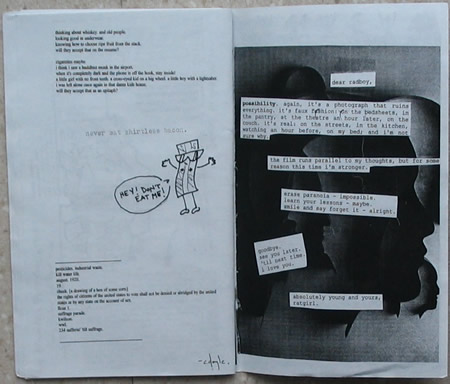 thinking about whiskey. and old people.
looking good in underwear.
knowing how to choose ripe fruit from the stack.
will they accept that on the resume?
cigarettes maybe.
i think i saw a buddhist monk in the airport.
when it's completely dark and the phone is off the hook, stay inside!
a little girl with no front teeth. a cross-eyed kid on a big wheel. a little boy with a lightsaber.
i was left alone once again in that damn kids house.
will they accept that as an epitaph?
never eat shirtless bacon.
HEY! DON'T
EAT ME!
pesticides. industrial waste.
kill water life.
august. 1920.
19.
chuck. (a drawing of a box of some corn)
the rights of citizens of the united states to vote shall not be denied or abridged by the united
states or by any state on the account of sex.
floor 1.
suffrage parade.
234 suffrin' till suffrage.
dear radboy,
possibility. again, it's a photograph that ruins
everything. it's faux fashion: on the bedsheets, in
the pantry, at the theatre an hour later, on the
couch. it's real: on the streets, in the kitchen,
watching an hour before, on my bed; and i'm not
sure why.
the film runs parallel to my thoughts, but for some
reason this time i'm stronger.
erase paranoia - impossible.
learn your lessons - maybe.
smile and say forget it - alright.
goodbye.
see you later.
'til next time.
i love you.
absolutely young and yours,
ratgirl.